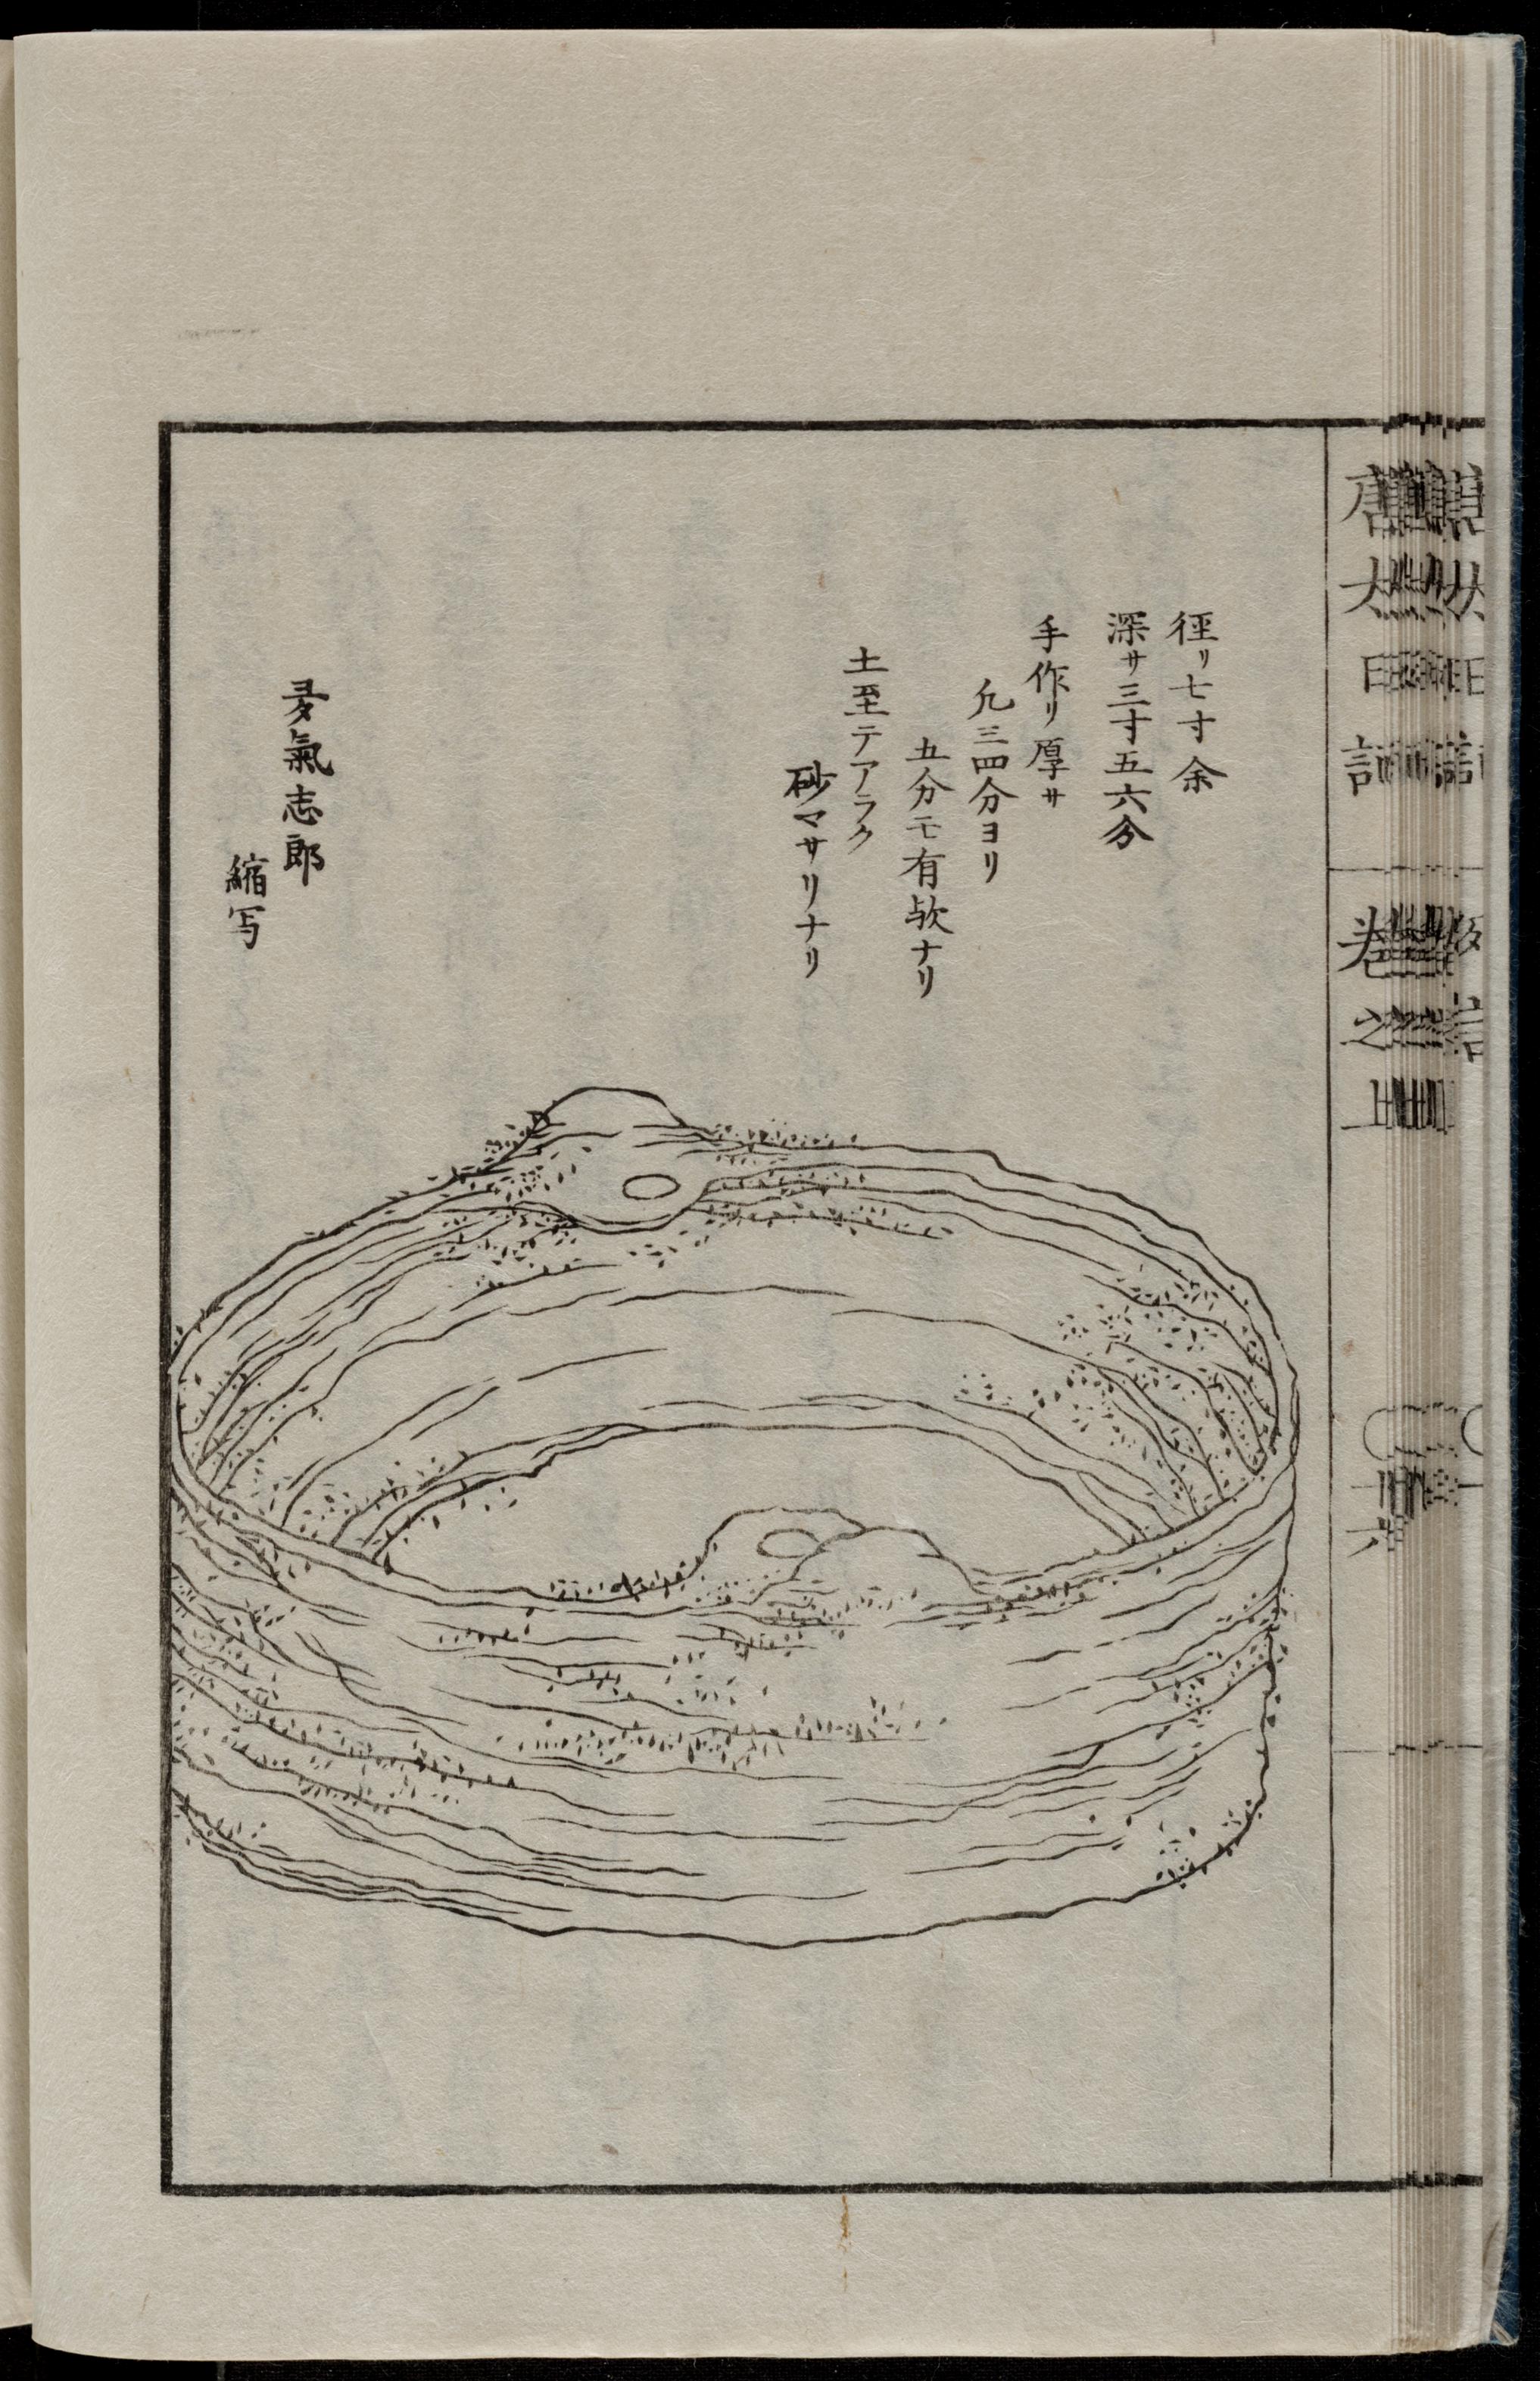 唐太日記 巻之上
十六
徑リ七寸余
深サ三寸五六分
手作リ厚サ
凢三四分ヨリ
五分モ有欤ナリ
土至テアラク
砂マサリナリ
多氣志郎
縮写